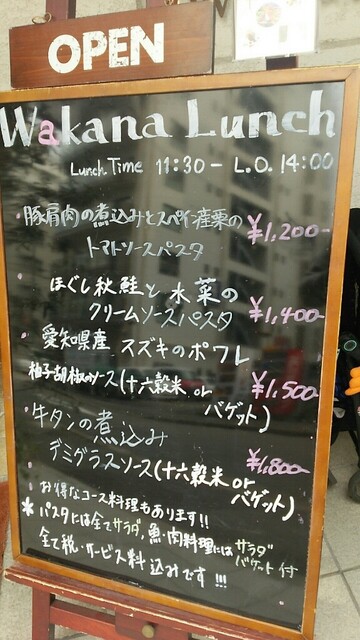 OPEN
Wakana Lunch
Lunch Time 11:30 - L.O. 14:00
・豚肩肉の煮込みとスペイン産栗の
トマトソースパスタ ¥1,200-
・ほぐし秋鮭と水菜の
クリームソースパスタ ¥1,400-
・愛知県産 スズキのポワレ
柚子胡椒のソース(十六穀米 or
バゲット) ¥1,500-
・牛タンの煮込み
デミグラスソース(十六穀米 or
バゲット) ¥1,800-
・お得なコース料理もあります!!
*パスタには全てサラダ、魚・肉料理には サラダ
バゲット 付
全て税・サービス料 込みです!!!